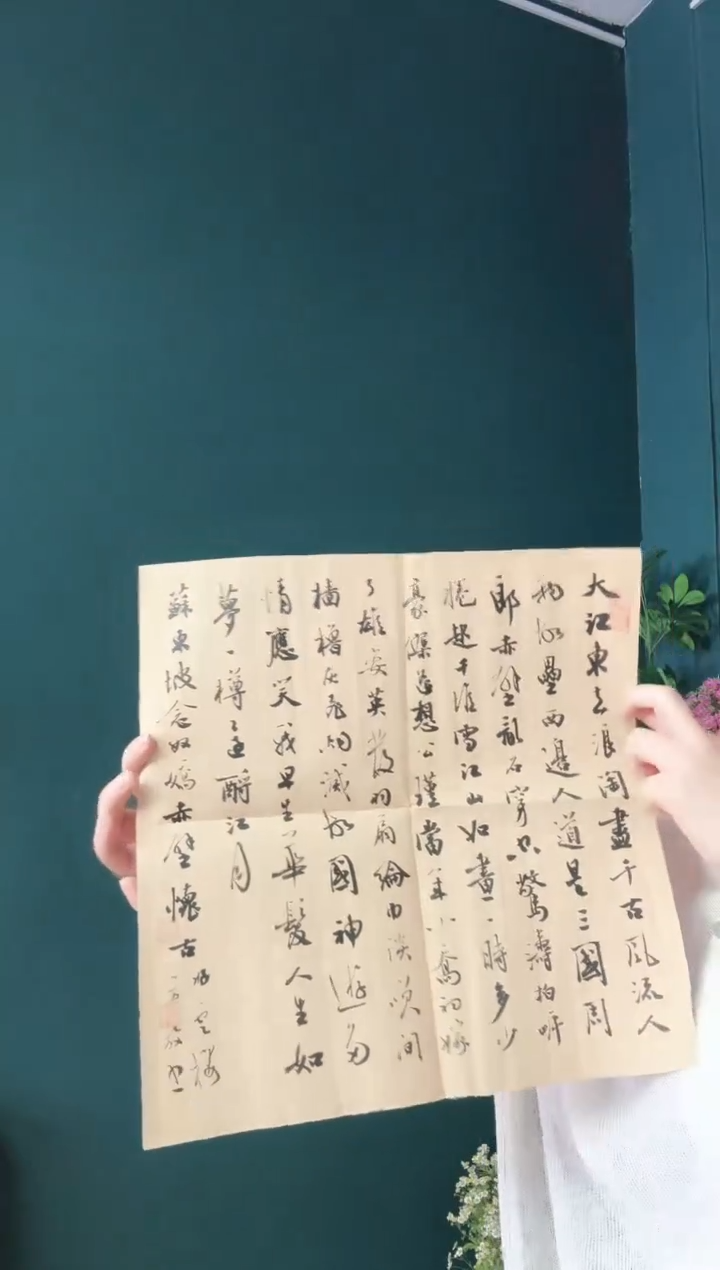 大江東去浪淘盡千古風流人
物故壘西邊人道是三國周
郎赤壁亂石穿空驚濤拍岸
捲起千堆雪江山如畫一時多少
豪傑遙想公瑾當年小喬初嫁
了雄姿英發羽扇綸巾談笑間
檣櫓灰飛烟滅故國神遊多
情應笑我早生華髮人生如
夢一樽還酹江月
蘇東坡念奴嬌赤壁懷古